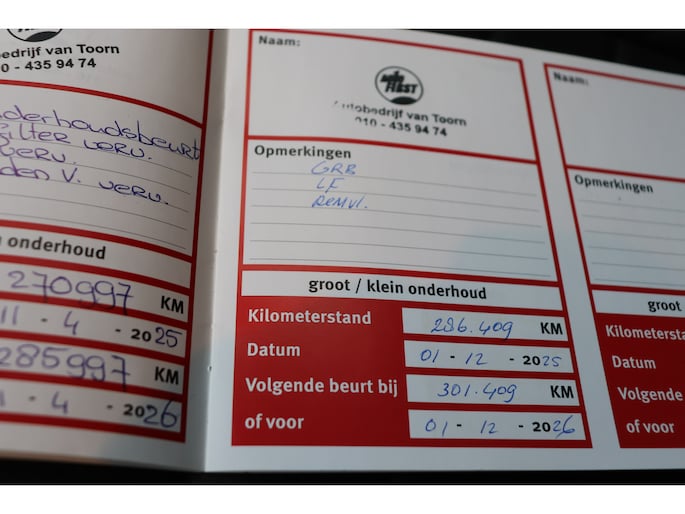 edrijf van Toorn
0 - 435 94 74
nderhoudsbeurt
filter verv.
verv.
den v. verv.
onderhoud
270997 KM
11 - 4 - 2025
285997 KM
- 4 - 2026
Naam:
FIRST
Autobedrijf van Toorn
010 - 435 94 74
Opmerkingen
GRB
LF
REMVl.
groot / klein onderhoud
Kilometerstand 286.409 KM
Datum 01 - 12 - 2025
Volgende beurt bij 301.409 KM
of voor 01 - 12 - 2026
Naam:
Opmerkingen
groot
Kilometersta
Datum
Volgende
of voor